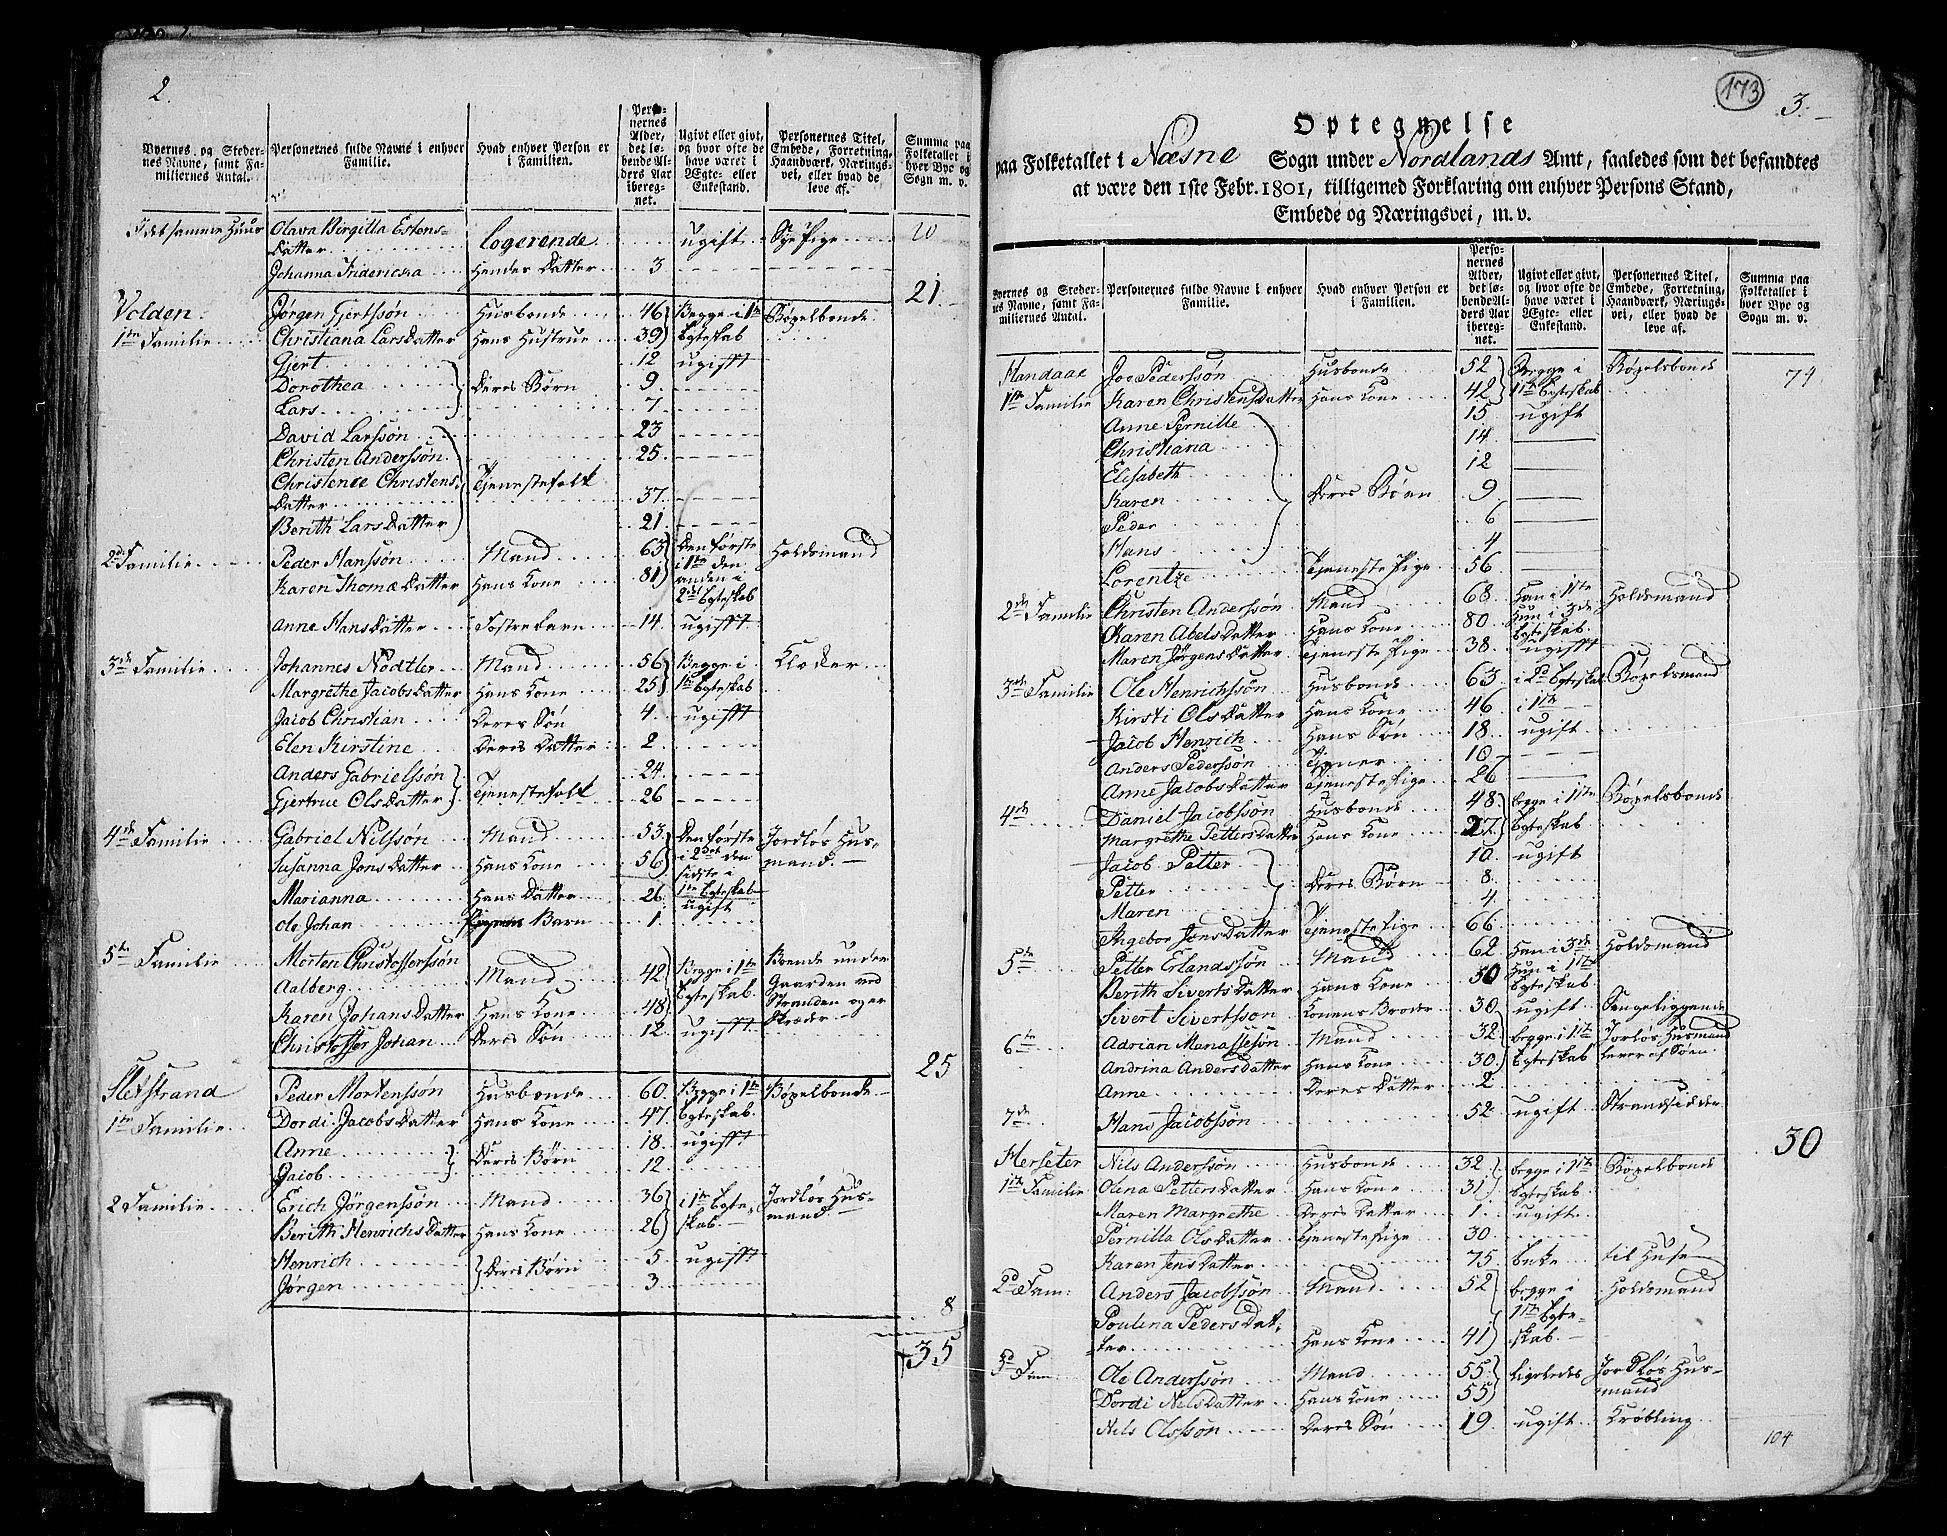 2.
Byernes og Steder-
nes Navne, samt Fa-
miliernes Antal.
Personernes fulde Navne i enhver
Familie.
Hvad enhver Person er
i Familien.
Perso-
nernes
Alder,
det lø-
bende Al-
ders Aar
ibereg-
net.
Ugivt eller givt,
og hvor ofte de
have været i
Ægte- eller
Enkestand.
Personernes Titel,
Embede, Forretning,
Haandværk, Nærings-
vei, eller hvad de
leve af.
Summa paa
Folketallet i
hver Bye og
Sogn m. v.
I det samme Huus Olava Birgitta Estens-
Datter logerende ugift Sye Pige 20
Johanna Fridericka Hendes Datter 3
21.
Volden. Jørgen Gjertssøn Husbonde 46 Begge i 1te Bøxelbonde
1te Familie Christiana Lars Datter Hans Hustrue 39 Egteskab
Gjert 12 ugifft
Dorothea Deres Børn 9
Lars 7
David Larssøn 23
Christen Anderssøn 25
Christence Christens- Tjenestefolk
Datter 37
Berith Lars Datter 21
2den Familie Peder Hanssøn Mand 63 Den første Holdsmand
Karen Thomæ Datter Hans Kone 81 i 1te den
anden i
2det Egteskab
Anne Hans Datter Fostre barn 14 ugifft
3de Familie Johannes Nodtler Mand 56 Begge i
Margrethe Jacobs Datter Hans Kone 25 1te Egteskab
Jacob Christian Deres Søn 4 ugifft
Elen Kirstine Deres Datter 2
Anders Gabrielssøn 24
Gjertrue Ols Datter Tjenestefolk 26
4de Familie Gabriel Nilssøn Mand 53 Den første Jordløs Hus-
Susanna Jons Datter Hans Kone 56 i 2det den mand.
sidste i
Marianna Hans Datter 26 1te Egteskab
ugift
Ole Johan Barn 1
5te Familie Morten Christofferssøn
Aalberg Mand 42 Begge i 1te Boende under
Gaarden ved
Karen Johans Datter Hans Kone 48 Egteskab Stranden og er
Christoffer Johan Deres Søn 12 ugifft
25
Sletstrand Peder Mortenssøn Husbonde 60 Begge i 1te Bøxelbonde
1te Familie Dordi Jacobs Datter Hans Kone 47 Egteskab
Anne 18 ugifft
Jacob Deres Børn 12
2 Familie Erich Jørgenssøn Mand 36 i 1te Egte- Jordløs Hus-
Berith Henrichs Datter Hans Kone 26 skab mand.
Henrich Deres Børn 5 ugifft
Jørgen 3
8
35
173
3.
Optegnelse
paa Folketallet i Næsne Sogn under Nordlands Amt, saaledes som det befandtes
at være den 1ste Febr. 1801, tilligemed Forklaring om enhver Persons Stand,
Embede og Næringsvei, m. v.
Byernes og Steder-
nes Navne, samt Fa-
miliernes Antal.
Personernes fulde Navne i enhver
Familie.
Hvad enhver Person er
i Familien.
Perso-
nernes
Alder,
det lø-
bende Al-
ders Aar
ibereg-
net.
Ugivt eller givt,
og hvor ofte de
have været i
Ægte- eller
Enkestand.
Personernes Titel,
Embede, Forretning,
Haandværk, Nærings-
vei, eller hvad de
leve af.
Summa paa
Folketallet i
hver Bye og
Sogn m. v.
Handaae Joe Pederssøn Husbonde 52 Begge i Bøxelsbonde 74
1ste Familie Karen Christens Datter Hans Kone 42 1ste Egteskab
Anne Pernille 15 ugift
Christiana 14
Elisabeth 12
Karen Deres Børn 9
Peder 6
Hans 4
Lorentze Tjeneste Pige 56
2de Familie Christen Anderssøn Mand 68 Han i 1te Holdsmand
Karen Abels Datter Hans Kone 80 Hun i 3de
Egteskab
Maren Jørgens Datter Tjeneste Pige 38 ugifft
3de Familie Ole Henrichssøn Husbonde 63 i 2d Egteskab Bøxelsmand
Kirsti Ols Datter Hans Kone 46 i 1te
Jacob Henrich Hans Søn 18 ugift
Anders Pederssøn Tjener 10
Anne Jacobs Datter Tjeneste Pige 26
4de Daniel Jacobssøn Husbonde 48 begge i 1te Bøxelsbonde
Margrethe Petters Datter Hans Kone 27 Egteskab
Jacob Petter 10 ugift
Petter Deres Børn 8
Maren 4
Ingebor Jens Datter Tjeneste Pige 66
5te Petter Erlandssøn Mand 62 Han i 3de Holdsmand
Berith Siverts Datter Hans Kone 50 Hun i 1te
Egteskab
Sivert Sivertsson Konens Broder 30 ugift Sengeliggende
6te Adrian Manassesøn Mand 32 begge i 1te Jorløs Husmand
Andrina Anders Datter Hans Kone 30 Egteskab lever af Søen
Anne Deres Datter 2
7de Hans Jacobssøn 52 ugift Strandsidder
30
Herseter Nils Anderssøn Husbonde 32 begge i 1te Bøxelbonde
1te Familie Olina Petters Datter Hans Kone 31 Egteskab
Maren Margrethe Deres Datter 1 ugift
Pernilla Ols Datter Tjeneste Pige 30
Karen Jens Datter 75 Enke til Huse
2d Fam: Anders Jacobssøn Mand 52 begge i Holdsmand
Poulina Peders Dat- 1te Egte-
ter Hans Kone 41 skab
3d Fam Ole Anderssøn Mand 55 ligeledes Jordløs Hus-
Dordi Nils Datter Hans Kone 55 mand
Nils Olssøn Deres Søn 19 ugift Krøbling
104